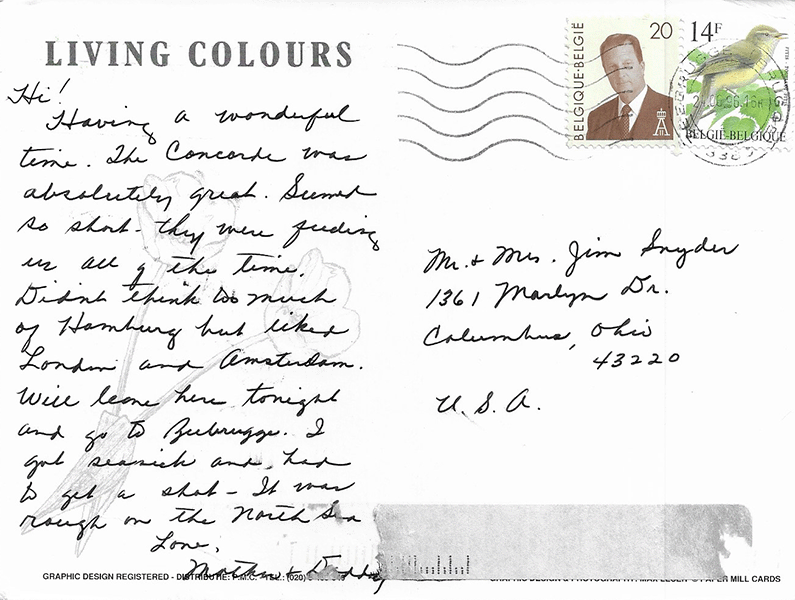 LIVING COLOURS
Hi!
Having a wonderful
time. The Concorde was
absolutely great. Seemed
so short - they were feeding
us all of the time.
Didn't think too much
of Hamburg but liked
London and Amsterdam.
Will leave here tonight
and go to Zeebrugge. I
got seasick and had
to get a shot - It was
rough on the North Sea
Love,
Mother & Daddy
GRAPHIC DESIGN REGISTERED - DISTRIBUTIE: P.M.C. - TEL.: (020)
BELGIQUE·BELGIË
20
14F
BELGIË-BELGIQUE
ZEEBRUGGE
24.06.96.16H
8380
Mr. & Mrs. Jim Snyder
1361 Marlyn Dr.
Columbus, Ohio
43220
U. S. A.
GRAPHIC DESIGN & PHOTOGRAPHY: MAX © PAPER MILL CARDS